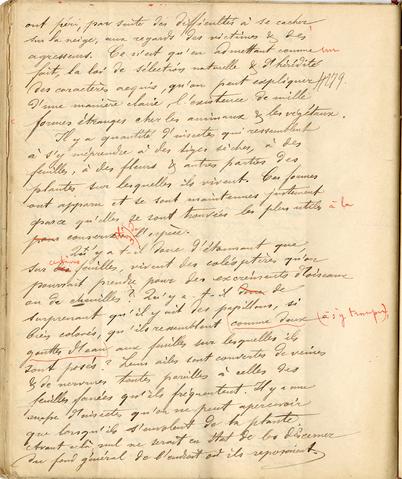 ont péri, par suite des difficultés à se cacher
sur la neige, aux regards des victimes & des
agresseurs. Ce n'est qu'en admettant comme un
fait, la loi de sélection naturelle & d'hérédité
des caractères acquis, qu'on peut expliquer
d'une manière claire l'existence de mille
formes étranges chez les animaux & les végétaux.
Il y a quantité d'insectes qui ressemblent
à s'y méprendre à des tiges sèches, à des
feuilles, à des fleurs & autres parties des
plantes sur lesquelles ils vivent. Ces formes
ont apparu et se sont maintenues justement
parce qu'elles se sont trouvées les plus utiles à la
pour l'espèce.
Qu'y a-t-il donc d'étonnant que
sur des feuilles, vivent des coléoptères qu'on
pourrait prendre pour des excréments d'oiseaux
ou de chenilles? Qu'y a-t-il donc de
surprenant qu'il y ait des papillons, si
bien colorés, qu'ils ressemblent comme deux (à s'y tromper)
gouttes d'eau aux feuilles sur lesquelles ils
sont posés? Leurs ailes sont couvertes de veines
& de nervures toutes pareilles à celles des
feuilles fanées qu'ils fréquentent. Il y a une
d'insectes qu'on ne peut apercevoir
que lorsqu'ils s'envolent de la plante.
Avant cela, nul ne serait en état de les discerner
du fond général de l'endroit où ils reposaient.